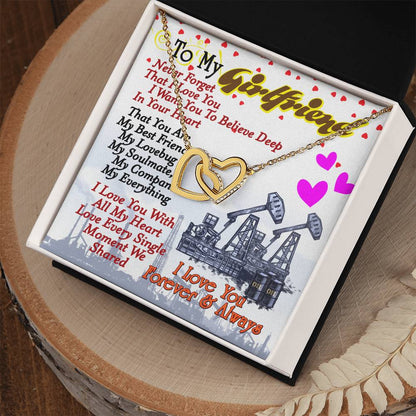 To My
Girlfriend
Never Forget
That I Love You
I Want You To Believe Deep
In Your Heart
That You Are
My Best Friend
My Lovebug
My Soulmate
My Compan
My Everything
I Love You With
All My Heart
Love Every Single
Moment We
Shared
I Love You
Forever & Always